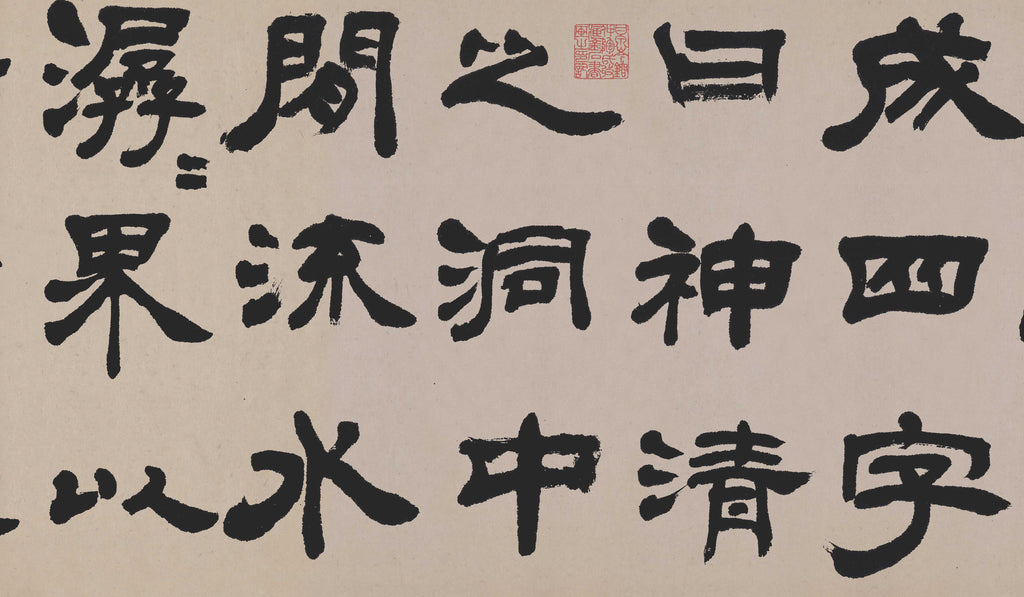 成四字
曰神清
之洞中
聞流水
潺〻果以